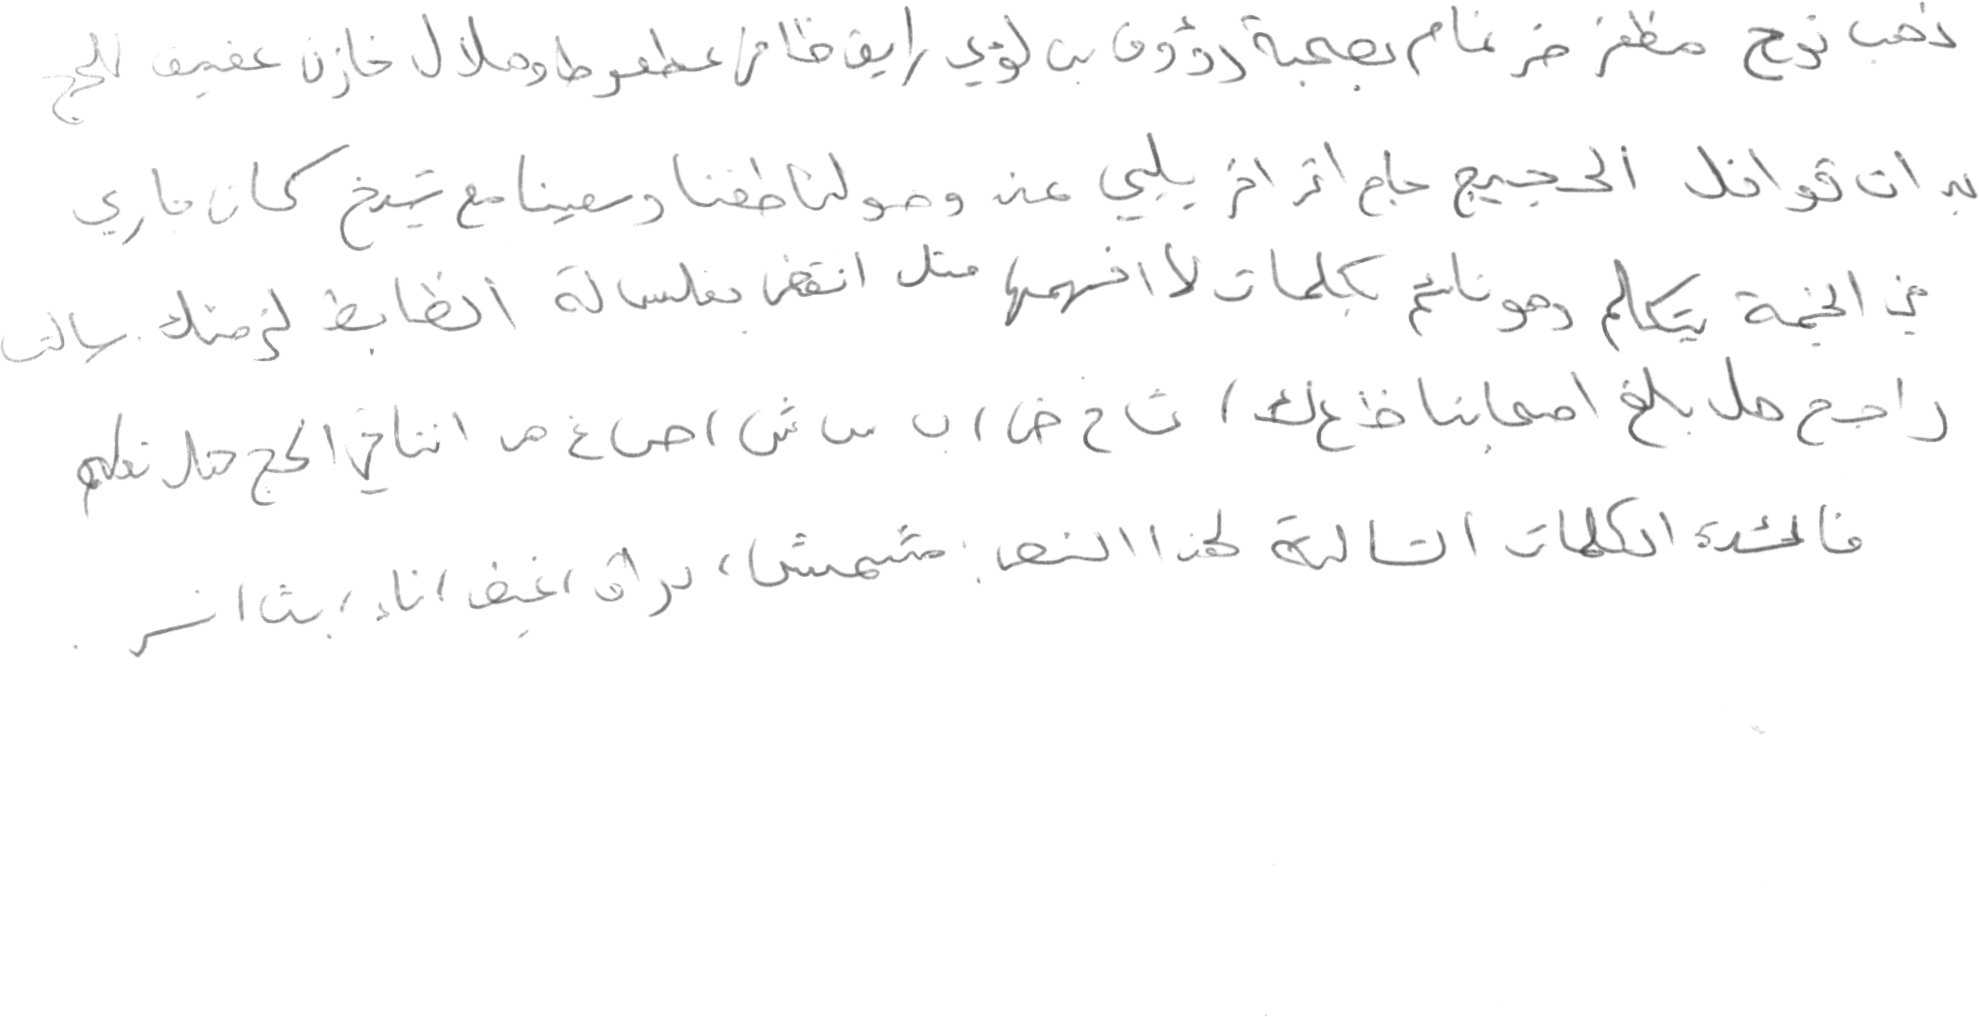 ذهب نوح مظفر ضرغام بصحبة رؤوف بن لؤي رايق ظافر عطعوط وهلال خازن عفيف للحج
بدات قوافل الحجيج حاج اثر اخر يلبي عند وصولنا طفنا وسعينا مع شيخ كان جاري
في الخيمة يتكلم وهو نائم بكلمات لا افهمها مثل انقض بغلسالة الظابط لزمتك سالت
راجح هل بلغ اصحابنا ظ ع ك ا ث ح ض ا ب س ش ا ص ا غ هـ اثناء الحج هل تعلم
فائدة الكلمات التالية لهذا النص: مشمش، براق، غيض، ناء، بث، اسر.